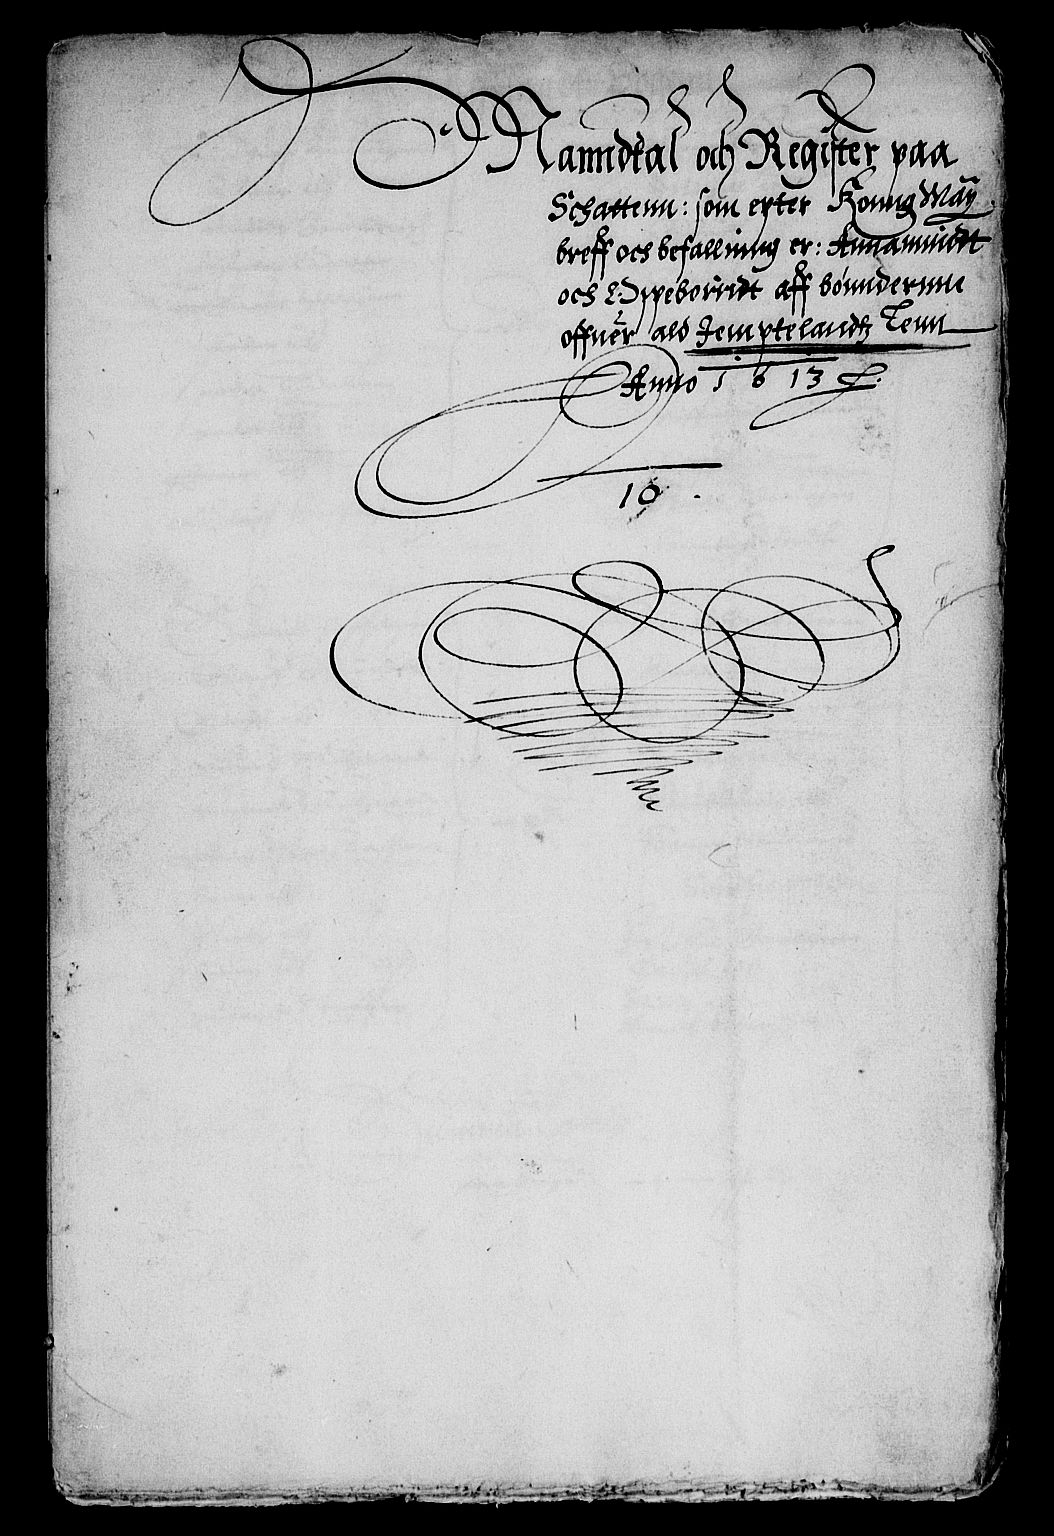 Manndtal och Register paa
Schattenn: som epter Konng May
breff och befallning er: Annammidt
och Oppeborridt aff bønndernne
offuer ald Jemptelandtz Lenn
Anno 1613
10.